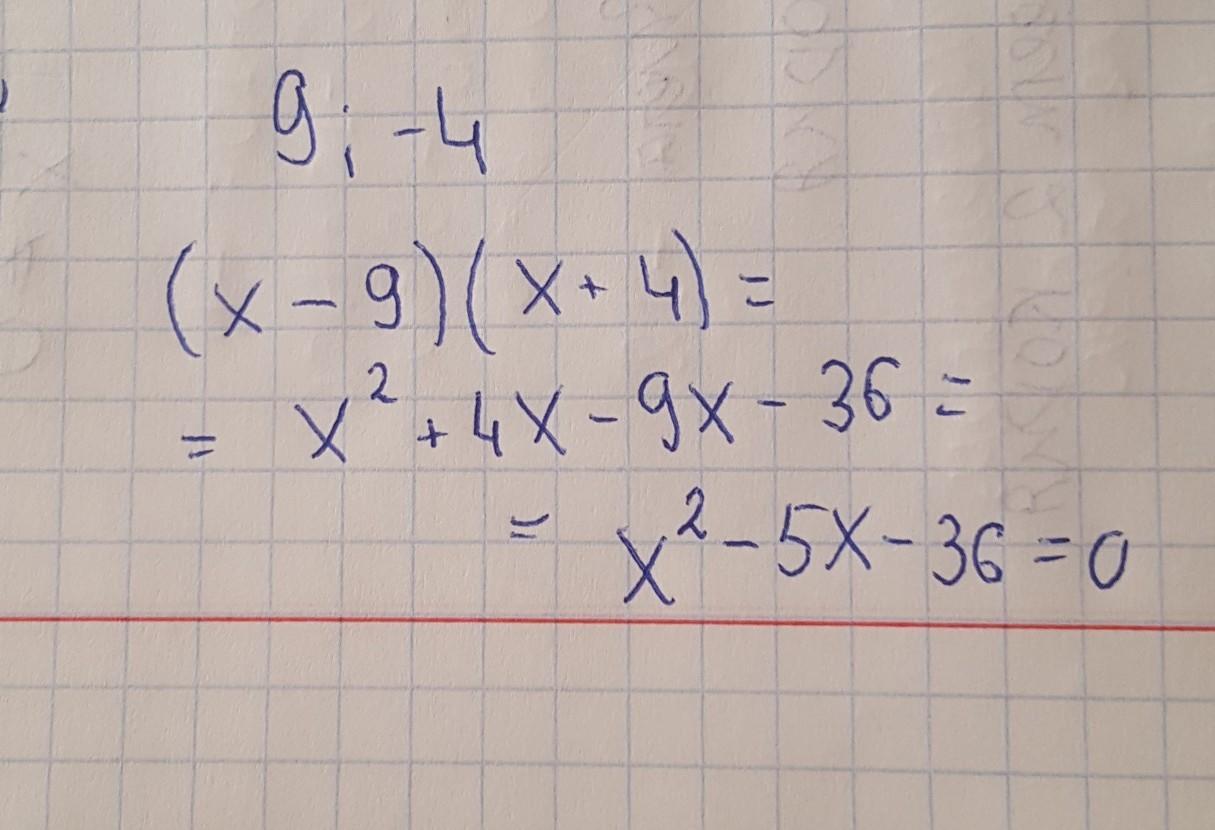 9; -4
(x - 9)(x + 4) =
= x² + 4x - 9x - 36 =
= x² - 5x - 36 = 0